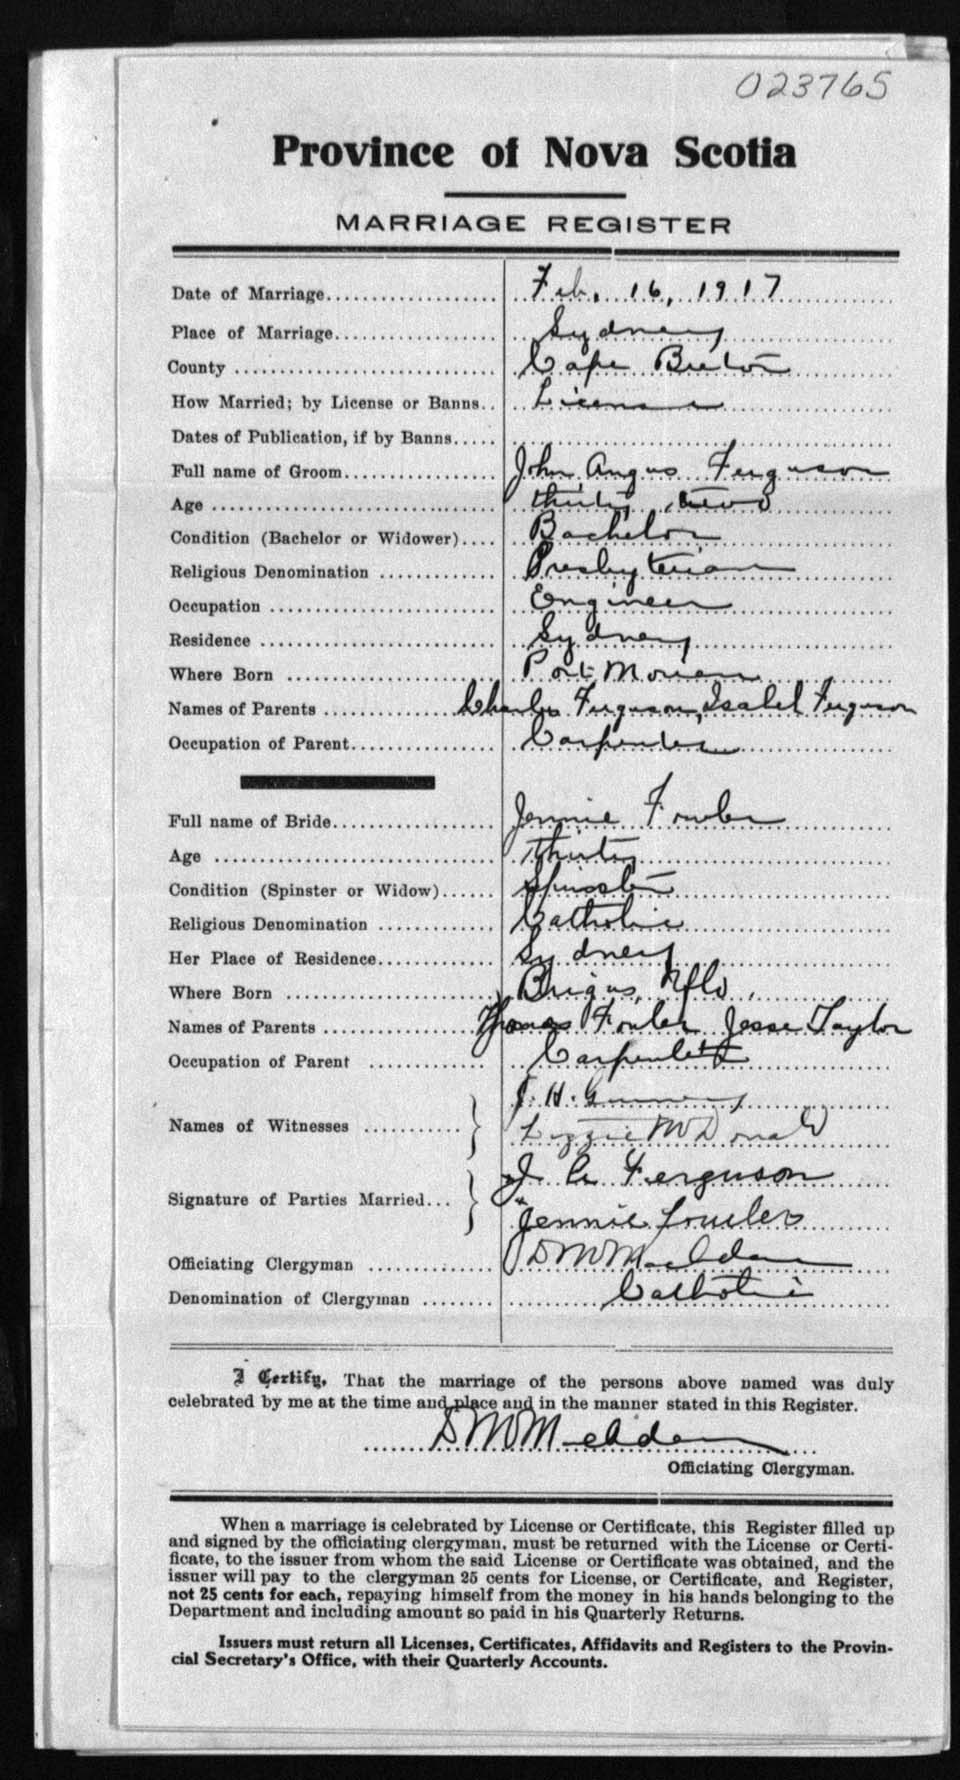 023765
Province of Nova Scotia
MARRIAGE REGISTER
Date of Marriage Feb. 16, 1917
Place of Marriage Sydney
County Cape Breton
How Married; by License or Banns License
Dates of Publication, if by Banns
Full name of Groom John Angus Ferguson
Age thirty two
Condition (Bachelor or Widower) Bachelor
Religious Denomination Presbyterian
Occupation Engineer
Residence Sydney
Where Born Port Morien
Names of Parents Charles Ferguson, Isabel Ferguson
Occupation of Parent Carpenter
Full name of Bride Jennie Fowler
Age thirty
Condition (Spinster or Widow) Spinster
Religious Denomination Catholic
Her Place of Residence Sydney
Where Born Brigus, Nfld.
Names of Parents Thomas Fowler Jesse Taylor
Occupation of Parent Carpenter
J. H.
Names of Witnesses
Lizzie McDonald
J A Ferguson
Signature of Parties Married
Jennie Fowler
Officiating Clergyman D M
Denomination of Clergyman Catholic
I Certify, That the marriage of the persons above named was duly
celebrated by me at the time and place and in the manner stated in this Register.
D M
Officiating Clergyman.
When a marriage is celebrated by License or Certificate, this Register filled up
and signed by the officiating clergyman, must be returned with the License or Certi-
ficate, to the issuer from whom the said License or Certificate was obtained, and the
issuer will pay to the clergyman 25 cents for License, or Certificate, and Register,
not 25 cents for each, repaying himself from the money in his hands belonging to the
Department and including amount so paid in his Quarterly Returns.
Issuers must return all Licenses, Certificates, Affidavits and Registers to the Provin-
cial Secretary's Office, with their Quarterly Accounts.